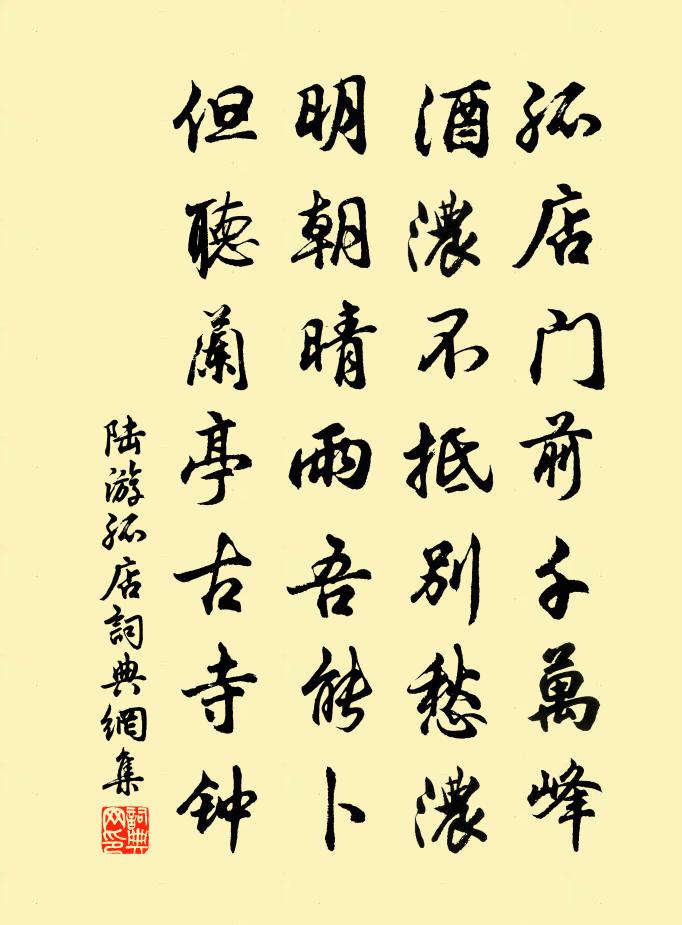 孤店门前千萬峰
酒濃不抵别愁濃
明朝晴雨吾能卜
但聽蘭亭古寺钟
陆游孤店詞典網集
詞典网印